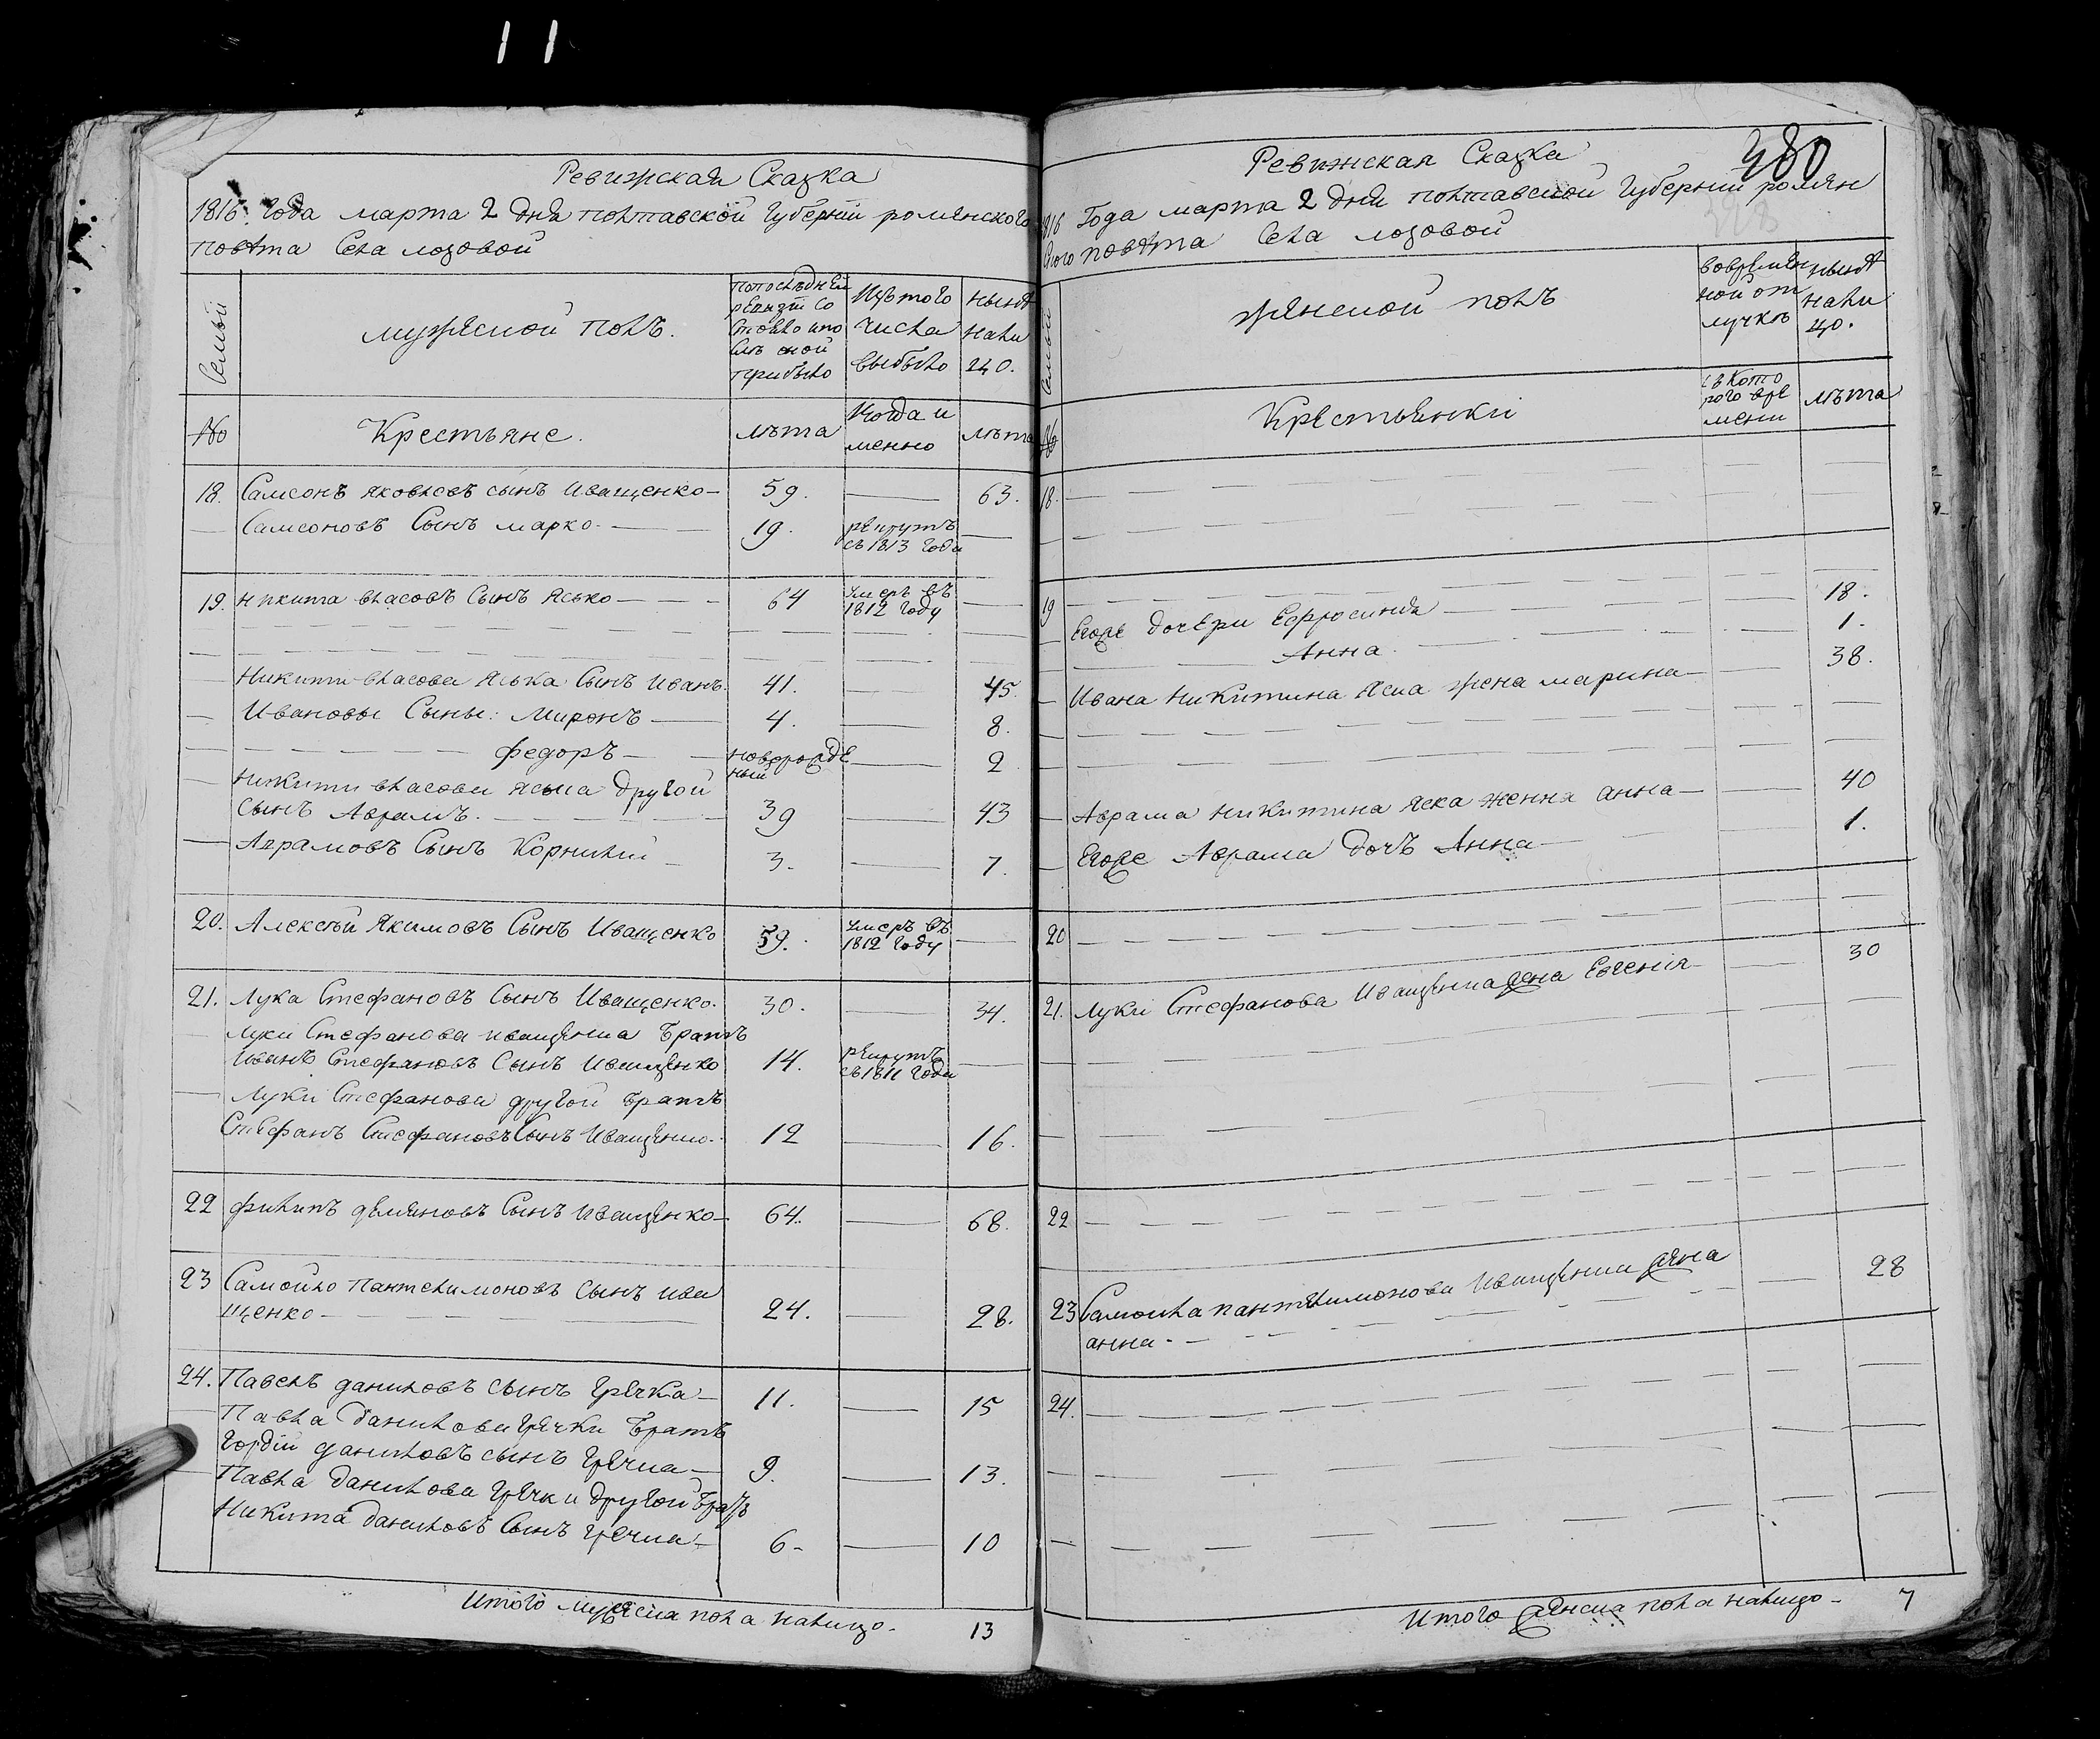 Ревижская Сказка
1816 года марта 2 дня полтавской губернии роменского
повѣта Села лозовой
Семьи
мужеской полъ.
по послѣдней
ревизіи со
стояло и по
слѣ оной
прибыло
Изъ того
числа
выбыло
нынѣ
нали
цо.
№
Крестьяне.
лѣта
Когда и
менно
лѣта
18. Самсонъ яковлевъ сынъ Иващенко 59. 63.
Самсоновъ Сынъ марко 19. рекрутъ
съ 1813 года
19. никита власовъ Сынъ ясько 64 умеръ въ
1812 году
Никити власова яська Сынъ Иванъ 41. 45.
Ивановы Сыны: Миронъ 4. 8.
федоръ новорожде
ный 2
Никити власова яська другой
сынъ Аврамъ. 39 43
Аврамовъ Сынъ Корнилій 3. 7.
20. Алексѣй Якимовъ Сынъ Иващенко 59. умеръ въ
1812 году
21. Лука Стефановъ Сынъ Иващенко. 30. 34.
Луки Стефанова иващенка братъ
Иванъ Стефановъ Сынъ Иващенко 14. рекрутъ
съ 1811 года
Луки Стефанова другой братъ
Стефанъ Стефановъ Сынъ Иващенко. 12 16.
22 филипъ демяновъ Сынъ Иващенко 64. 68.
23 Самойло пантелимоновъ сынъ ива
щенко 24. 28.
24. Павелъ даниловъ сынъ гречка 11. 15
Павла данилова гречки братъ
гордій даниловъ сынъ гречка 9. 13.
Павла данилова гречки другой братъ
Никита даниловъ Сынъ гречка 6 10
Итого мужеска пола налицо. 13
380
Ревижская Сказка
1816 Года марта 2 дня полтавской Губернии ромен
ского повѣта Села лозовой
Семьи
женской полъ
во времен
ной от
лучкѣ
нынѣ
нали
цо.
№
Крестьянки
съ кото
рого вре
мени
лѣта
18.
19
Егоже дочери Ефросинія 18.
Анна 1.
Ивана Никитина яска жена марина 38.
Аврама никитина яска женна анна 40
Егоже Аврама дочъ Анна 1.
20
21. Луки Стефанова Иващенка жена Евгенія 30
22
23 Самойла пантелимонова иващенка жена
анна 28
24.
Итого женска пола налицо 7